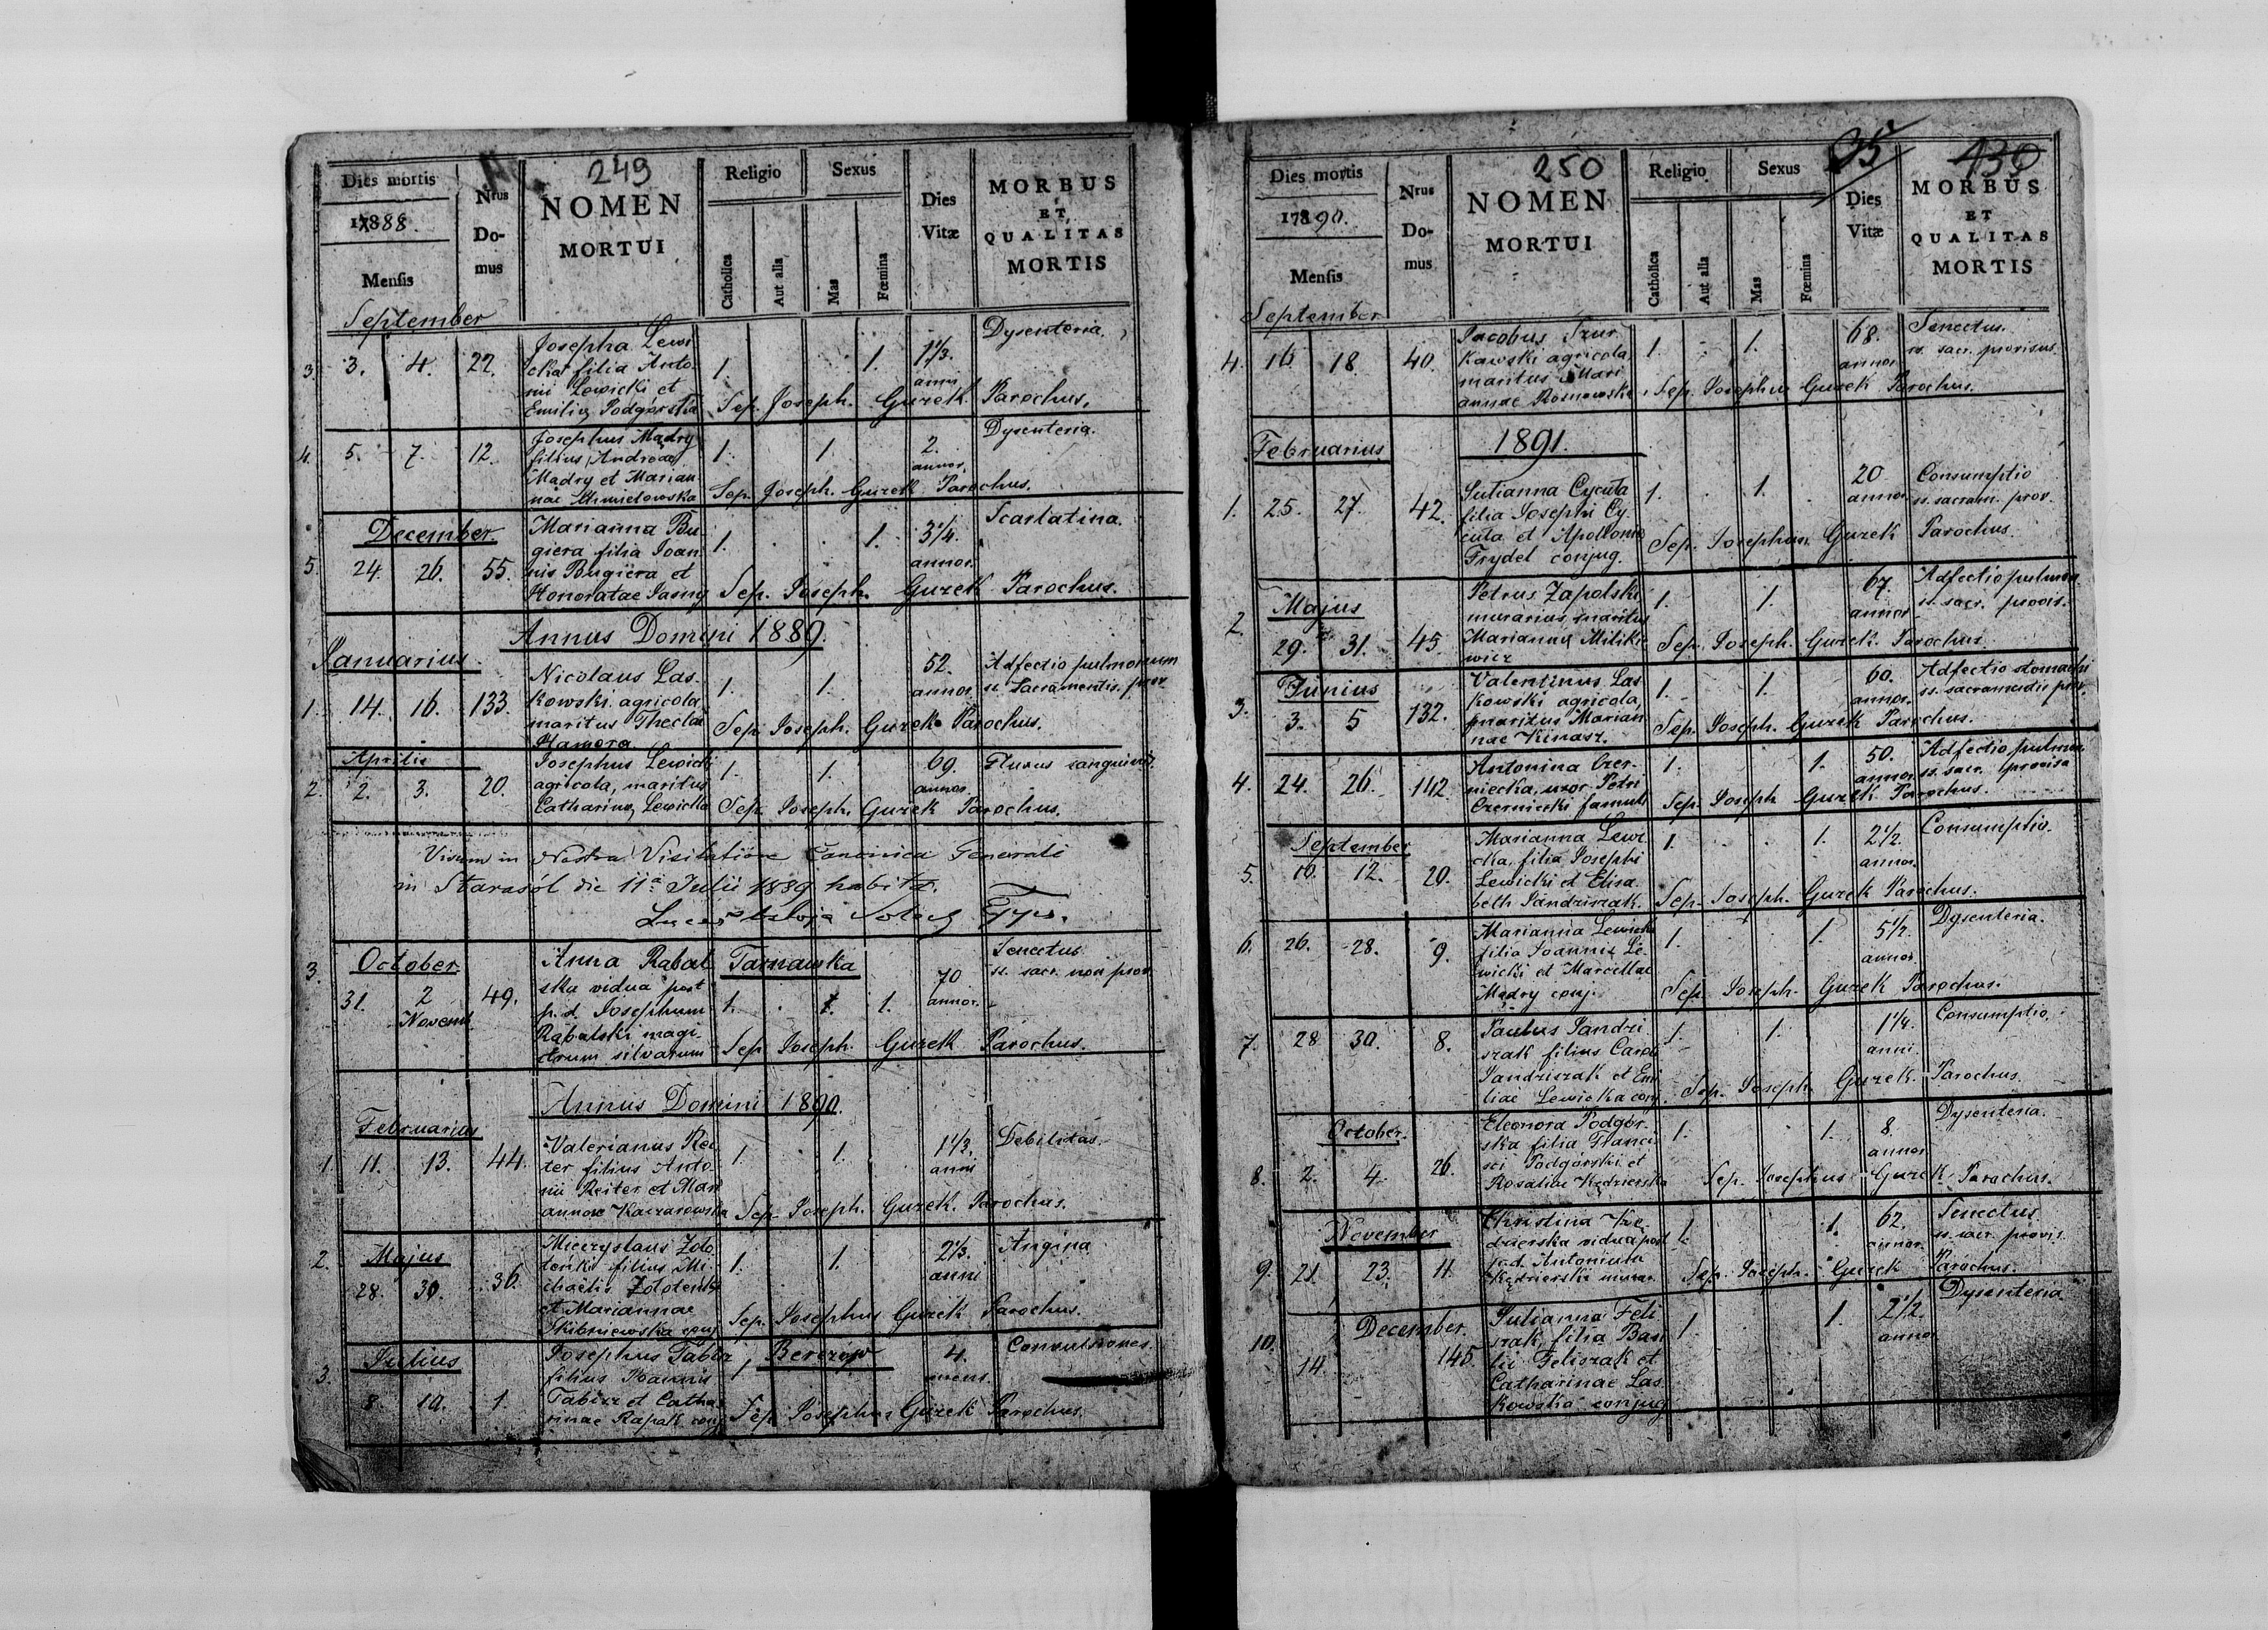 249
Dies mortis
1888.
Mensis
Nrus Do-mus
NOMEN
MORTUI
Religio
Catholica
Aut alia
Sexus
Mas
Fœmina
Dies Vitæ
MORBUS
ET
QUALITAS
MORTIS
September
3. 3. 4. 22. Josepha Lewi 1. 1. 1 1/3. Dysenteria.
cka filia Anto- anni
nii Lewicki et
Emiliae Podgórska Sep. Joseph. Gurek Parochus.
4. 5. 7. 12. Josephus Mądry 1. 1. 2. Dysenteria.
filius Andreae annor.
Mądry et Marian
nae Sep. Joseph. Gurek Parochus.
December Marianna Bu- 1. 1. 3 1/4. Scarlatina.
giera filia Joan annor.
5. 24. 26. 55. nis Bugiera et
Honoratae Jasny Sep. Joseph. Gurek Parochus.
Annus Domini 1889.
Januarius.
1. 14. 16. 133. Nicolaus Las- 1. 1. 52. Adfectio pulmonum
kowski agricola annor. ss. Sacramentis prov.
maritus Theclae
Hamora Sep. Joseph. Gurek Parochus.
Aprilis
2. 2. 3. 20. Josephus Lewicki 1. 1. 69. Fluxus sanguinis.
agricola, maritus annor.
Catharinae Lewicka Sep. Joseph. Gurek Parochus.
Visum in Nostra Visitatione Canonica Generali
in Starasól die 11a Julii 1889 habita.
3. October Anna Rabal Tarnawska Senectus
31. 2 Novemb. 49. ska vidua post 1. 1. 70 annor. ss. sacr. non prov.
p. d. Josephum
Rabalski magi-
strum silvarum Sep. Joseph. Gurek Parochus.
Annus Domini 1890.
Februarius
1. 11. 13. 44. Valerianus Rei 1. 1. 1 1/2. Debilitas.
ter filius Anto- anni
nii Reiter et Mari
annae Kaczarowska Sep. Joseph. Gurek. Parochus.
2. Majus Mieczyslaus Zoło 1. 1. 2 1/3. Angina
28. 30. 36. tenki filius Mi- anni
chaelis Zołotenki
et Mariannae
Skibniewska conj. Sep. Josephus Gurek Parochus.
3. Julius Josephus Tabisz, Berezów 4. Convulsiones.
8. 10. 1. filius Joannis 1 mens.
Tabisz et Catha
rinae Rapak conj. Sep. Josephus Gurek Parochus.
250
95
130
Dies mortis
17890.
Mensis
Nrus Do-mus
NOMEN
MORTUI
Religio
Catholica
Aut alia
Sexus
Mas
Fœmina
Dies Vitæ
MORBUS
ET
QUALITAS
MORTIS
September
4. 16 18. 40. Jacobus Szur 1. 1. 68. Senectus.
kawski agricola annor. ss. sacr. provisus
maritus Mari
annae Rosnowska. Sep. Josephus Gurek Parochus.
Februarius 1891.
1. 25. 27. 42. Julianna Cycuta 1. 1. 20 Consumptio
filia Josephi Cy- annor. ss. sacram. prov.
cuta et Apollonia
Frydel conjug. Sep. Josephus Gurek Parochus.
2. Majus Petrus Zapolski 1. 1. 67. Adfectio pulmon.
murarius, maritus annor. ss. sacr. provis.
29. 31. 45. Marianny Milikie
wicz Sep. Joseph. Gurek. Parochus.
3. Junius Valentinus Las 1. 1. 60. Adfectio stomachi
3. 5 132. kowski agricola, annor. ss. sacramentis prov.
maritus Marian
nae Kinasz. Sep. Joseph. Gurek Parochus.
4. 24. 26. 142. Antonina Czer- 1. 1. 50. Adfectio pulmon.
niecka, uxor Petri annor. ss. sacr. provisa
Czerniecki famuli Sep. Joseph Gurek Parochus.
September Marianna Lewi 1. 1. 2 1/2. Consumptio.
5. 10. 12. 20. cka, filia Josephi annor.
Lewicki et Elisa
beth Jandziszak. Sep. Joseph. Gurek Parochus.
6. 26. 28. 9. Marianna Lewicki 1. 1. 5 1/2. Dysenteria.
filia Joannis Le- annor.
wicki et Marcellae
Mądry conj. Sep. Joseph. Gurek Parochus.
7. 28 30. 8. Paulus Jandzi 1. 1. 1 1/4. Consumptio.
szak filius Caroli anni.
Jandziszak et Emi
liae Lewicka conj. Sep. Joseph. Gurek. Parochus.
October. Eleonora Podgór- 1. 1. 8. Dysenteria.
8. 2. 4. 26. ska filia Franci annor.
sci Podgórski et
Rosaliae Kędzierska Sep. Josephus Gurek Parochus.
November Christina Kę 1. 1. 62. Senectus
9. 21. 23. 11. dzierska vidua post annor. ss. sacr. provis.
p. d. Antonium
Kędzierski murar. Sep. Joseph. Gurek Parochus.
10. December. Julianna Feli 1. 1. 2 1/2. Dysenteria
14. 145. szak, filia Basi annor.
lii Feliszak et
Catharinae Las
kowska conjug.